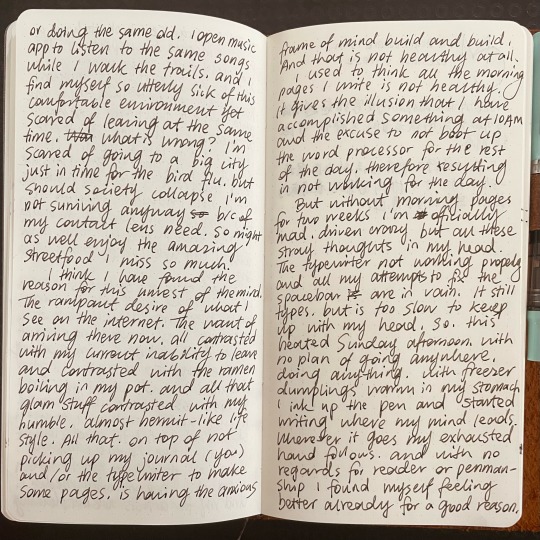 or doing the same old. I open music
app to listen to the same songs
while I walk the trails. and I
find myself so utterly sick of this
comfortable environment yet
scared of leaving at the same
time. what is wrong? I'm
scared of going to a big city
just in time for the bird flu. but
should society collapse I'm
not surviving anyway b/c of
my contact lens need. So might
as well enjoy the amazing
streetfood I miss so much.
I think I have found the
reason for this unrest of the mind.
The rampant desire of what I
see on the internet. The want of
arriving there now. all contrasted
with my current inability to leave
and contrasted with the ramen
boiling in my pot. and all that
glam stuff contrasted with my
humble. almost hermit-like life
style. All that. on top of not
picking up my journal (you)
and/or the typewriter to make
some pages. is having the anxious
frame of mind build and build.
And that is not healthy at all.
I used to think all the morning
pages I write is not healthy.
It gives the illusion that I have
accomplished something at 10AM
and the excuse to not boot up
the word processor for the rest
of the day. therefore resulting
in not working for the day.
But without morning pages
for two weeks I'm officially
mad. driven crazy. but all these
stray thoughts in my head.
The typewriter not working properly
and all my attempts to fix the
spacebar are in vain. It still
types. but is too slow to keep
up with my head, so. this
heated Sunday afternoon. with
no plan of going anywhere.
doing anything. with freezer
dumplings warm in my stomach
I ink up the pen and started
writing where my mind leads.
Wherever it goes my exhausted
hand follows. and with no
regards for reader or penman-
ship I found myself feeling
better already for a good reason.